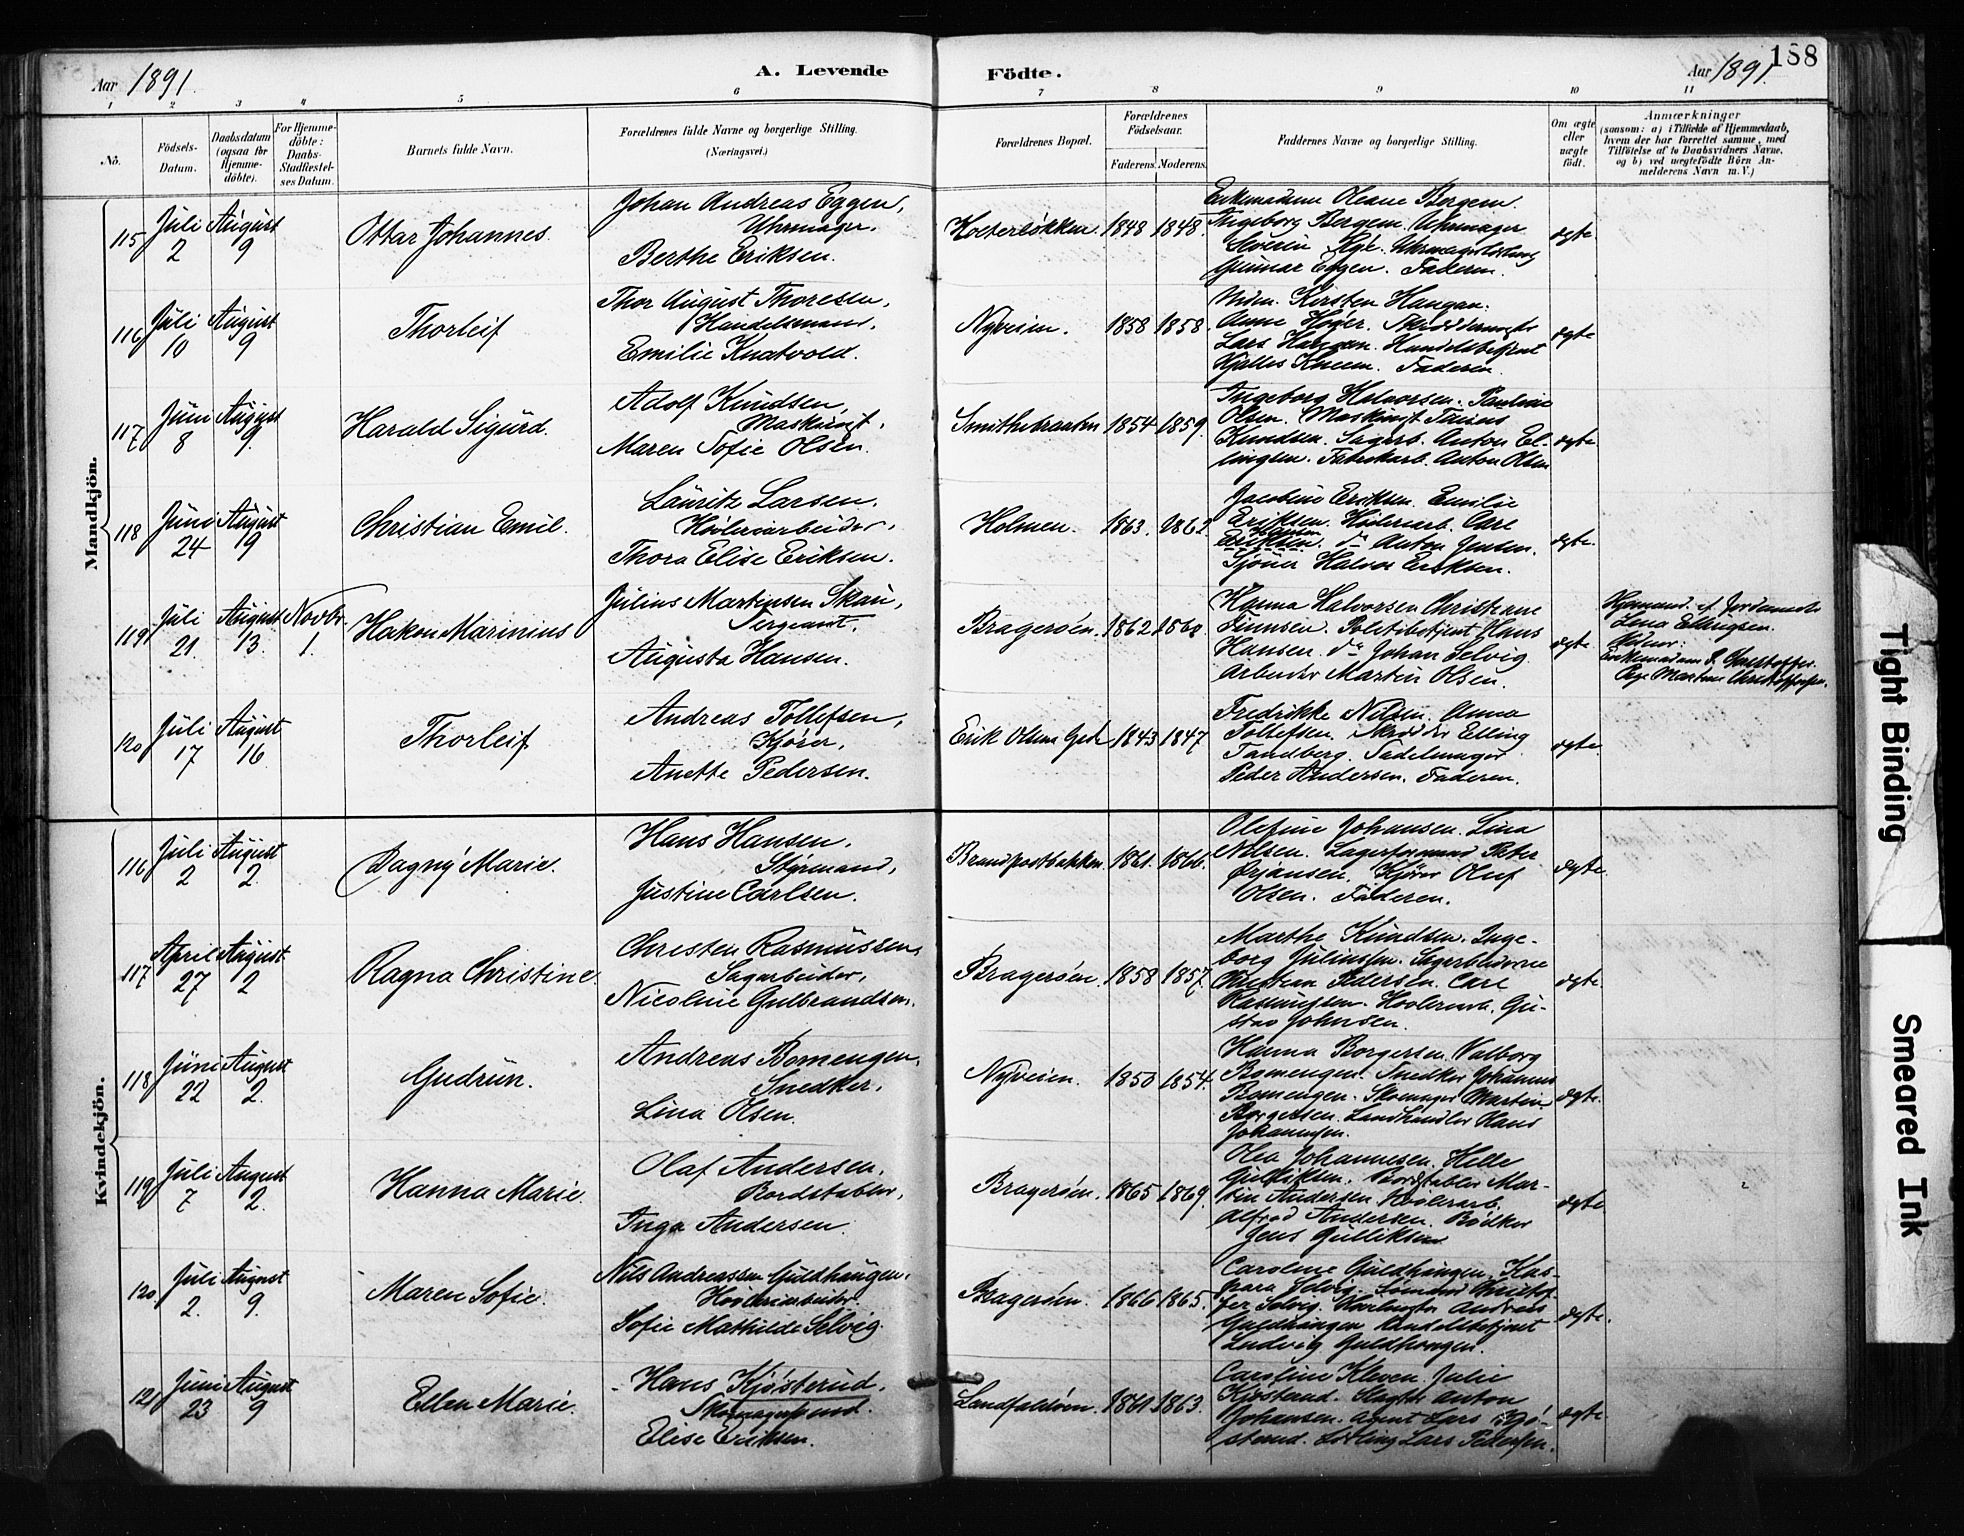 Aar 1891.
A. Levende
Födte.
Aar 1891.
188
1 2 3 4 5 6 7 8 9 10 11
No.
Födsels-
Datum.
Daabsdatum
(ogsaa for
Hjemme-
döbte).
For Hjemme-
döbte:
Daabs-
Stadfæstel-
ses Datum.
Barnets fulde Navn.
Forældrenes fulde Navne og borgerlige Stilling.
(Næringsvei.)
Forældrenes Bopæl.
Forældrenes
Födselsaar.
Faderens. Moderens.
Faddernes Navne og borgerlige Stilling.
Om ægte
eller
uægte
födt.
Anmærkninger
(saasom: a) i Tilfælde af Hjemmedaab,
hvem der har forrettet samme, med
Tilföielse af to Daabsvidners Navne,
og b) ved uægtefödte Börn An-
melderens Navn m. V.)
Mandkjön.
115 Juli 2 August 9 Ottar Johannes.
Johan Andreas Eggen,
Uhrmager.
Berthe Eriksen.
1848 1848.
Enkemadam Oleane Bergem.
Ingeborg Bergem. Uhrmager
Gunnar Eggen. Faderen.
ægte.
116 Juli 10 August 9 Thorleif
Thor August Thoresen,
Handelsmand,
Emilie Knatvold.
Nyveien. 1858 1858
Kirsten Haugan.
Anne Høyer.
Lars Haugan. Handelsbetjent
Faderen.
ægte
117 Juni 8 August 9. Harald Sigurd.
Adolf Knudsen,
Maskinist,
Maren Sofie Olsen.
Smithebraaten 1854 1859.
Ingeborg Halvorsen. Pauline
Olsen. Maskinist
Knudsen. Sagarb. Anton El-
lingsen. Fabrikarb. Anton Olsen
ægte.
118 Juni 24 August 9 Christian Emil.
Lauritz Larsen.
Høvleriarbeider,
Thora Elise Eriksen.
Holmen. 1863.
Jacobine Eriksen. Emilie
Eriksen. Høvleriarb. Carl
Eriksen. do Anton Jensen.
Sjømd Halvor Eriksen.
ægte.
119 Juli 21. August 13. Novbr. 1. Hakon Marinius
Julius Martinsen Skau,
Sergeant,
Augusta Hansen.
Bragerøen. 1862
Hanna Halvorsen Christiane
Finnsen. Politibetjent Hans
Hansen. do Johan Selvig
Arbeider Martin Olsen.
ægte.
Hjemmed. af Jordemoder
Lena Ellingsen.
Pige Martine Christoffersen.
120 Juli 17 August 16. Thorleif
Andreas Tollefsen,
Kjører,
Anette Pedersen.
Erik Olsens Gade 1843 1847
Fredrikke Nilsen. Anna
Tollefsen. Skrædder Elling
Tandberg. Sadelmager
Peder Andersen. Faderen.
ægte.
Kvindekjön.
116 Juli 2 August 2. Dagny Marie.
Hans Hansen,
Styrmand,
Justine Carlsen.
Brandpostbakken. 1861. 1866.
Olefine Johansen. Lina
Nilsen. Lagerformand Peter
Ørjansen. Kjører Oluf
Olsen. Faderen.
ægte.
117 April 27 August 2 Ragna Christine.
Christen Rasmussen,
Sagarbeider,
Nicoline Gulbrandsen.
Bragerøen. 1858 1857.
Marthe Knudsen. Inge-
borg Juliussen. Sagarbeiderne
Christian Pedersen. Carl
Rasmussen. Høvleriarb. Gu-
stav Johnsen.
ægte.
118 Juni 22 August 2. Gudrun.
Andreas Bomengen,
Snedker,
Lina Olsen.
Nyveien. 1850 1854.
Hanna Borgersen. Valborg
Bomengen. Snedker Johannes
Bomengen. Skomager Martin
Borgersen. Landhandler Hans
Johannesen.
ægte.
119 Juli 7 August 2. Hanna Marie.
Olaf Andersen,
Bordstabler,
Inga Andersen.
Bragerøen. 1865 1869.
Olea Johannesen. Helle
Gulliksen. Bordstabler Mar-
tin Andersen. Høvleriarb.
Alfred Andersen. Bødker
Jens Gulliksen
ægte.
120 Juli 2. August 9. Maren Sofie.
Nils Andreassen Guldhaugen,
Høvleriarbeider.
Sofie Mathilde Selvig.
Bragerøen. 1866 1865.
Caroline Guldhaugen. Kas-
para Selvig. Sømand Christof-
fer Selvig. Andreas
Guldhaugen Handelsbetjent
Ludvig Guldhaugen.
ægte.
121 Juni 23 August 9 Ellen Marie.
Hans Kjøsterud.
Skomagersvend.
Elise Eriksen.
Landfaldøen. 1861 1863.
Caroline Kleven. Julie
Kjøsterud. Slagter Anton
Johansen. Agent Lars Kjø-
sterud. Lærling Lars Pedersen.
ægte.
Tight Binding
Smeared Ink